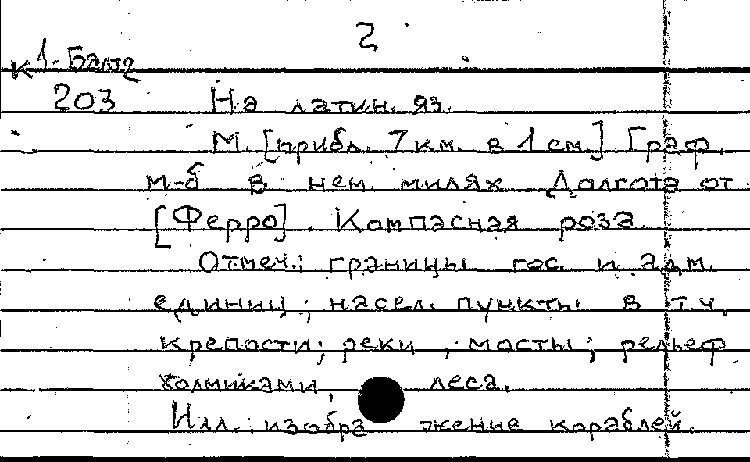 2
К 1-Балт
203 На латин. яз.
М. [прибл. 7 км. в 1 см.] Граф.
м-б в нем. милях Долгота от
[Ферро]. Компасная роза.
Отмеч.: границы гос. и адм.
единиц; насел. пункты в т.ч.
крепости; реки; мосты; рельеф
холмиками, леса.
Илл.: изображение кораблей.